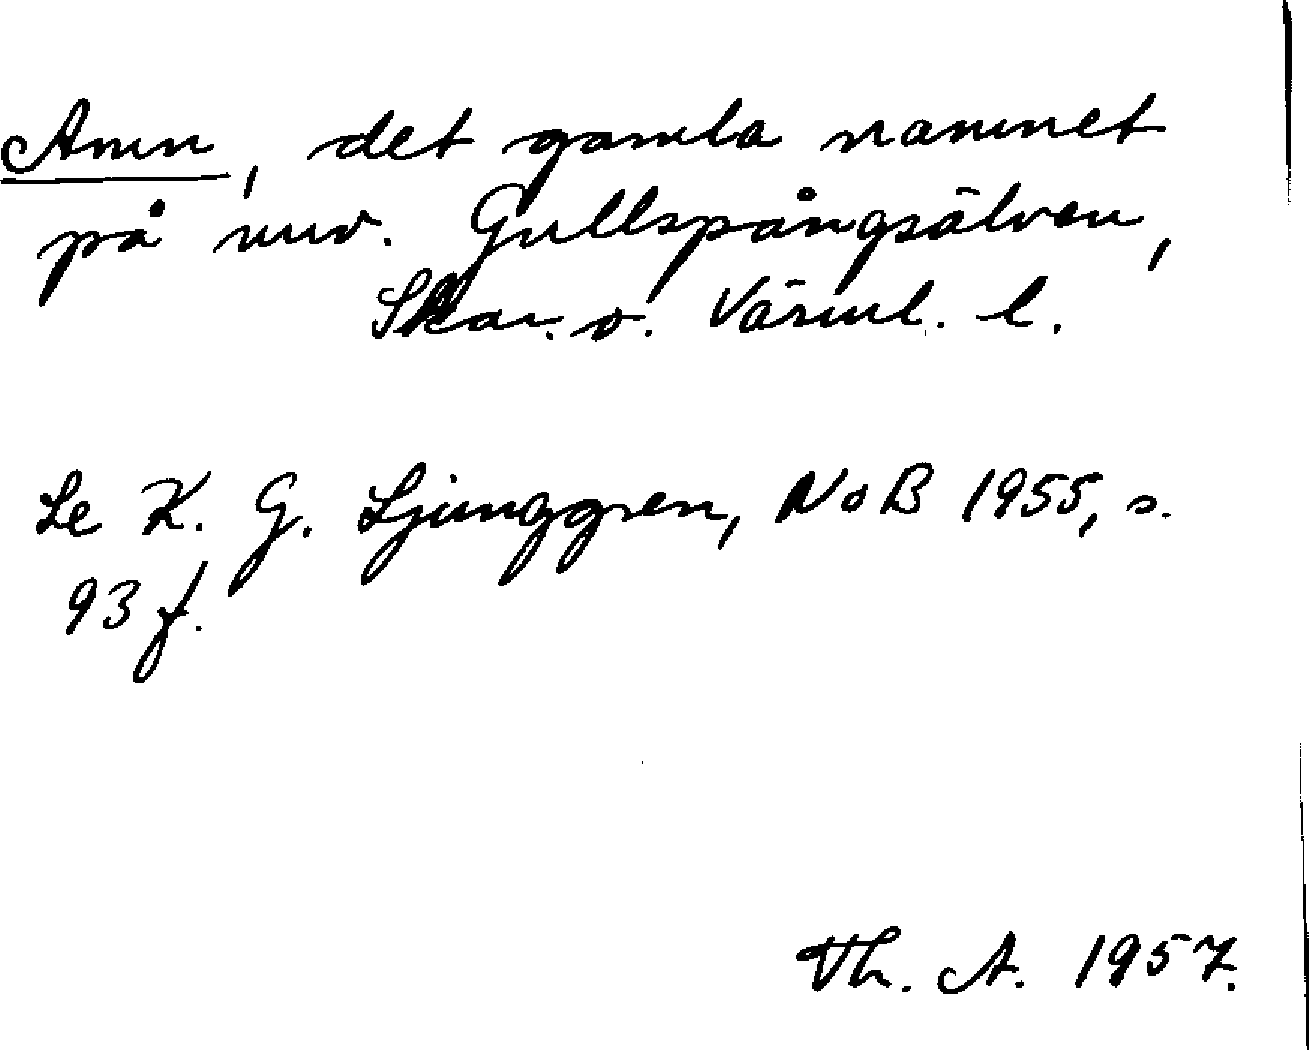 Amn, det gamla namnet
på nuv. Gullspångsälven,
Skar. o. Värml. l.
Se K. G. Ljunggren, NoB 1955, s.
93 f.
Th. A. 1957.